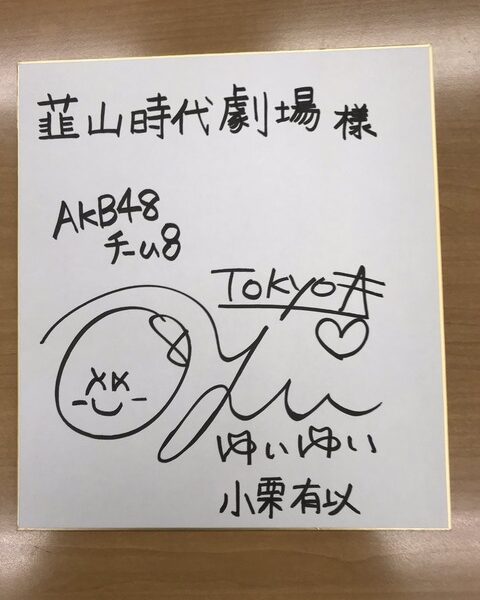 韮山時代劇場 様
AKB48
チーム8
TOKYO
ゆいゆい
小栗有以